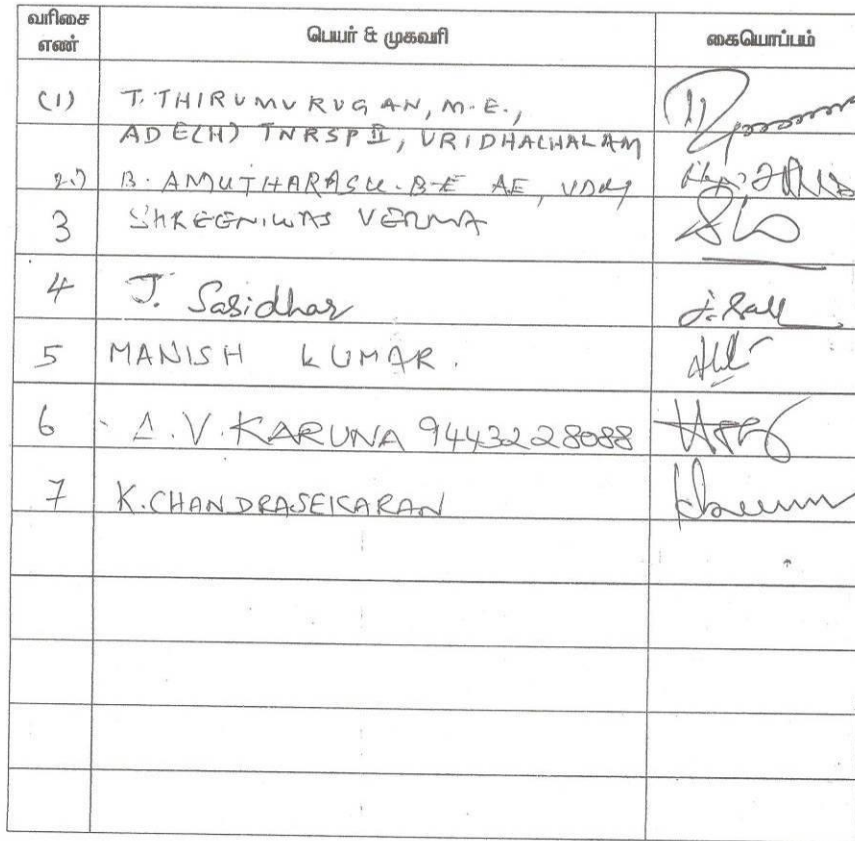 வரிசை எண் பெயர் & முகவரி கையொப்பம்
(1) T. THIRUMURUGAN, M.E.,
ADE(H) TNRSP II, VRIDHACHALAM
2.) B. AMUTHARASU. B-E AE, VDM
3 SHREENIWAS VERMA
4 J. Sasidhar
5 MANISH KUMAR.
6 A.V. KARUNA 9443228088
7 K. CHANDRASEKARAN